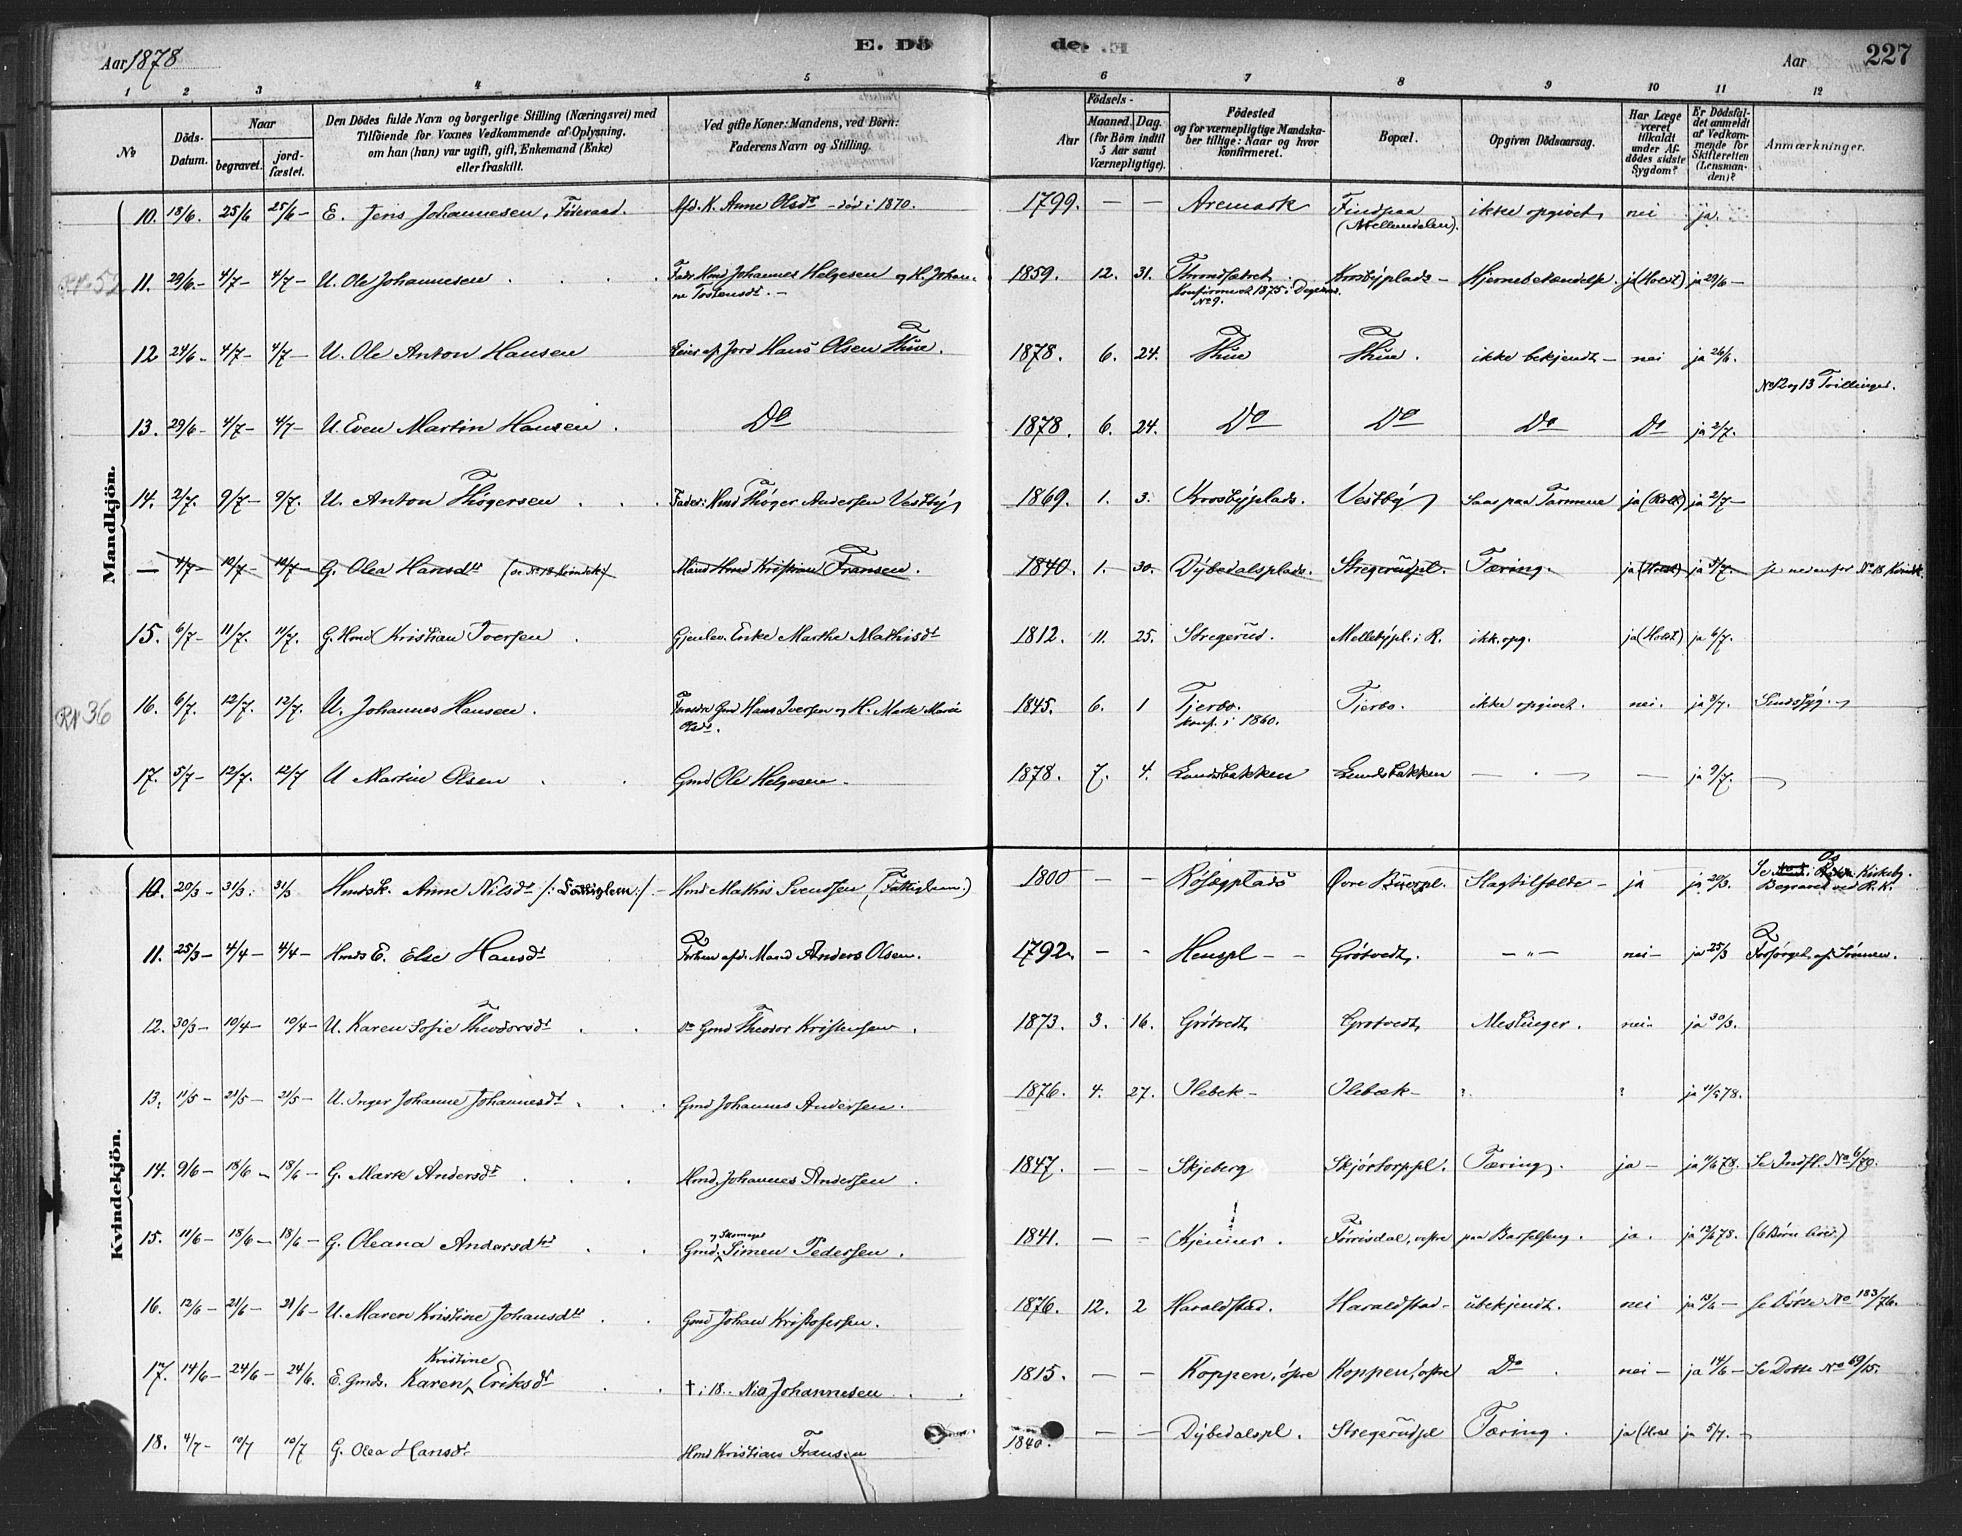 Aar 1878 E. Dö de. Aar 227
1 2 3 4 5 6 7 8 9 10 11 12
No Döds-Datum. Naar begravet. jordfæstet. Den Dödes fulde Navn og borgerlige Stilling (Næringsvei) med Tilföiende for Voxnes Vedkommende af Oplysning, om han (hun) var ugift, gift, Enkemand (Enke) eller fraskilt. Ved gifte Koner: Mandens, ved Börn: Faderens Navn og Stilling. Födsels- Aar Maaned. Dag. (for Börn indtil 5 Aar samt Værnepligtige). Födested og for værnepligtige Mandskaber tillige: Naar og hvor konfirmeret. Bopæl. Opgiven Dödsaarsag. Har Læge været tilkaldt under Afdödes sidste Sygdom? Er Dödsfaldet anmeldt af Vedkommende for Skifteretten (Lensmanden)? Anmærkninger.
Mandkjön.
10. 18/6. 25/6 25/6 – E. Jens Johannesen, Föderaad. Afd. K. Anne Olsdt – död i 1870. 1799. – – Aremark Findpaa (Mellemdalen). ikke opgivet, nei ja.
RN. 52 11. 29/6 – 4/7 – 4/7 – U. Ole Johannesen Fader Hmd Johannes Helgesen og H. Johanne Torstensdt. – 1859. 12. 31. Throndsætret. Konfirmeret 1875 i Degernes No 9. Krosbyplads – Hjernebetændelse. ja (Holst) ja 29/6 –
12 24/6 – 4/7 – 4/7 – U. Ole Anton Hansen Leier af Jord Hans Olsen Thue. 1878. 6. 24. Thue Thue. ikke bekjendt – nei ja 26/6.
No 12 og 13 Tvillinger.
13. 29/6 – 4/7 – 4/7 – U. Even Martin Hansen. Do 1878. 6. 24. Do Do Do Do ja 2/7.
14. 2/7. 9/7 – 9/7. U. Anton Thøgersen Fader: Hmd Thøger Andersen Vestby, 1869. 1. 3. Krosbyplads. Vestby, Saar paa Tarmene ja (Holst) ja 2/7 –
– 4/7 – 10/7 – 10/7 – G. Olea Hansdt (se No 18 Kvindek.) Mand Hmd Kristian Fransen. 1840. 1. – 30. Dybedalsplads. Stregerudpl. Tæring. ja (Holst) ja 5/7. se nedenfor No 18 Kvindk.
15. 6/7 – 11/7. 11/7. G. Hmd Kristian Iversen Gjenlev. Enke Marthe Mathisdt 1812. 11. 25. Stregerud. Mellebypl. i R. ikk. opg. ja (Holst) ja 6/7.
RN 36 16. 6/7. 12/7. 12/7. U. Johannes Hansen. Forældre Gmd Hans Iversen og H. Marte Marie Olsdt. 1845. 6. 1 Tjerbo. konf. i 1860. Tjerbo. ikke opgivet. nei. ja 8/7. Sindssyg.
17. 5/7 – 12/7. 12/7 U Martin Olsen Gmd Ole Helgesen – 1878. 7. 4. Lundsbakken Lundsbakken – – ja 9/7. –
Kvindekjön.
10. 20/3 – 31/3. 31/3 Hmdsk. Anne Nilsdt /: Fattiglem :/ – Hmd Mathis Svendsen (Fattiglem.) 1800 – – Rösægplads Øvre Buerpl. Slagtilfælde – ja ja 20/3. Se Os Kirkeby. Begravet ved R.K.
11. 25/3 – 4/4 – 4/4 – Hmds E. Else Hansdt Forhen afd. Mand Anders Olsen. 1792. – – Henspl – – Grøtvedt. – " – nei – ja 25/3 Forsörget af Sönnen.
12. 30/3 – 10/4 – 10/4 – U. Karen Sofie Theodorsdt Do Gmd Theodor Kristensen. 1873. 3. 16. Grøtvedt Grøtvedt, Meslinger. nei – ja 30/3.
13. 11/5 – 21/5 – 21/5 – U. Inger Johanne Johannesdt Gmd Johannes Andersen. 1876. 4. 27. Ilebek – Ilebæk – ? ? ja 11/5 78.
14. 9/6 – 18/6 – 18/6 – G. Marte Andersdt Hmd. Johannes Andersen. 1847. – – Skjeberg Skjörtorppl. Tæring, ja – ja 11/6 78. Se Indfl. No 6/79.
15. 11/6 – 18/6 – 18/6 – G. Oleana Andersdtr Gmd, og Skomager Simen Pedersen. 1841. – – Kjenner. Förrisdal, vestre paa Barselseng. ja. ja 12/6 78. (6 Börn leve.)
16. 12/6 – 21/6 – 21/6 – U. Maren Kristine Johansdtr Gmd Johan Kristofersen. 1876. 12. 2 Haraldstad. Haraldstad – ubekjendt. nei ja 13/6 – se Döbte No 183/76.
17. 14/6 – 24/6 – 24/6. E. Gmds. Karen Kristine Eriksdt † i 18.. Nils Johannesen 1815. – – Koppen, östre Koppen, östre Do nei – ja 14/6 – Se Dobte No 69/15.
18. 4/7 – 10/7 10/7 G. Olea Hansdt Hmd Kristian Fransen 1840. – – Dybedalspl. Stregerudpl Tæring. ja (Holst ja 5/7. –